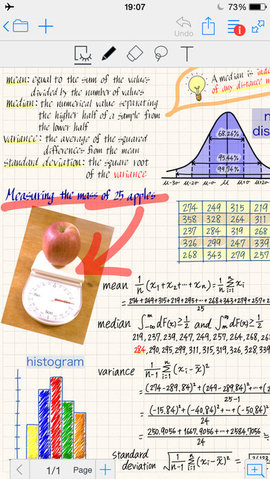 19:07
73%
Undo
T
mean: equal to the sum of the values
divided by the number of values
median: the numerical value separating
the higher half of a sample from
the lower half
variance: the average of the squared
differences from the mean
standard deviation: the square root
of the variance
A median is
of any distance
68.26%
95.44%
99.74%
μ-3σ μ-2σ μ-σ μ μ+σ μ+2σ
Measuring the mass of 25 apples
274 249 315 219
358 328 264 311
237 284 319 268
326 299 247 339
268 343 279 257
mean 1/n (x₁+x₂+···+xₙ) = 1/n Σ xᵢ
= 274+249+315+219+293+···+268+343+279+257+
median ∫ dF(x) ≥ 1/2 and ∫ dF(x) ≥ 1/2
219, 237, 239, 247, 249, 257, 264, 268,
284, 290, 295, 299, 311, 315, 319, 326, 328, 339
variance 1/n-1 Σ (xᵢ-x̄)²
= (274-289.84)²+(249-289.84)²+···+
25-1
= (-15.84)²+(-40.84)²+···+(-50.84)
24
= 250.9056+1667.9056+···+2584.7056
24
standard
deviation √ 1/n-1 Σ (xᵢ-x̄)²
histogram
1/1
Page